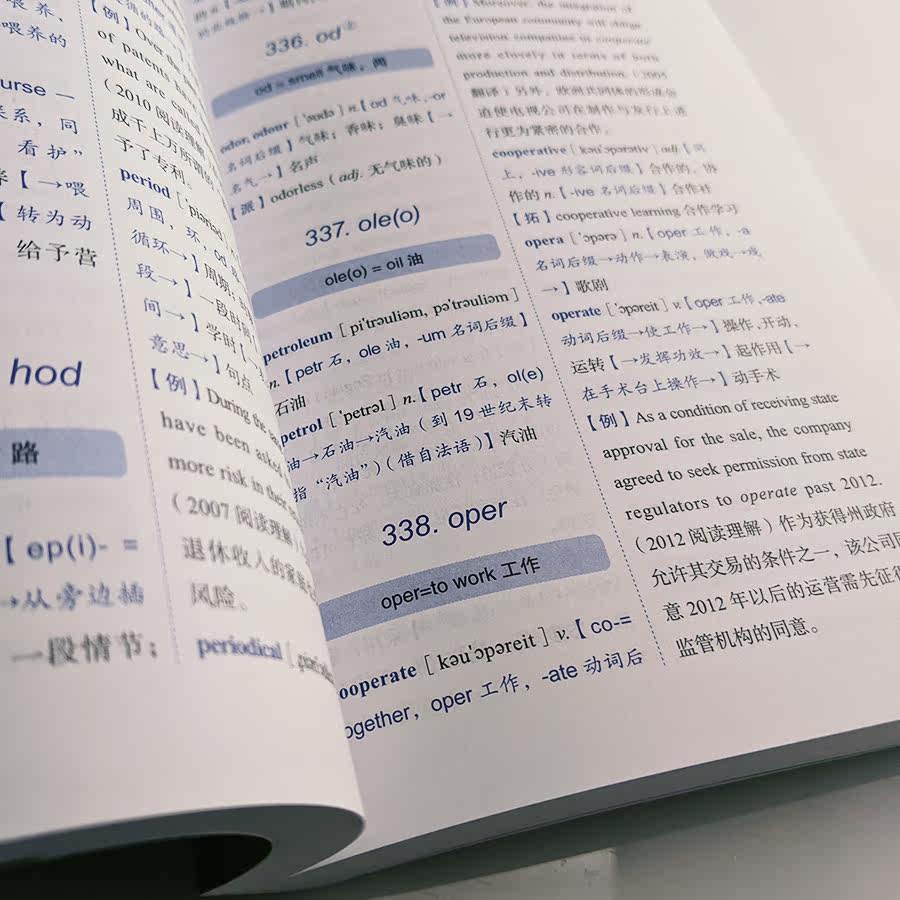 喂养，
喂养的
urse —
关系，同
看护”
【→喂
【转为动
给予营
hod
路
【ep(i)- =
→从旁边插
一段情节；
【例】Over the
of patents
what are called
（2010 阅读理解）
成千上万所谓的
予了专利。
period
周围，环，od 路
循环→】周期；
段→】一段时间
间→】学时【
意思→】句点
【例】During the
have been asked
more risk in their
（2007 阅读理解）
退休收入的家庭
风险。
periodical
336. od②
od = smell 气味，闻
odor, odour [ˈəudə] n.【od 气味, -or
名词后缀】气味；香味；臭味【→
名气→】名声
【派】odorless（adj. 无气味的）
337. ole(o)
ole(o) = oil 油
petroleum [piˈtrəuliəm, pəˈtrəuliəm]
n.【petr 石，ole 油，-um 名词后缀】
石油
petrol [ˈpetrəl] n.【petr 石，ol(e)
油→石油→汽油（到 19 世纪末转
指“汽油”）（借自法语）】汽油
338. oper
oper=to work 工作
ooperate [kəuˈɔpəreit] v.【co-=
ogether，oper 工作，-ate 动词后
【例】Moreover, the integration of
the European community will oblige
television companies to cooperate
more closely in terms of both
production and distribution.（2005
翻译）另外，欧洲共同体的形成会
迫使电视公司在制作与发行上进
行更为紧密的合作。
cooperative [kəuˈɔpərətiv] adj.【同
上，-ive 形容词后缀】合作的，协
作的 n.【-ive 名词后缀】合作社
【拓】cooperative learning 合作学习
opera [ˈɔpərə] n.【oper 工作，-a
名词后缀→动作→表演，做戏→戏
→】歌剧
operate [ˈɔpəreit] v.【oper 工作, -ate
动词后缀→使工作→】操作,开动,
运转【→发挥功效→】起作用【→
在手术台上操作→】动手术
【例】As a condition of receiving state
approval for the sale, the company
agreed to seek permission from state
regulators to operate past 2012.
（2012 阅读理解）作为获得州政府
允许其交易的条件之一，该公司同
意 2012 年以后的运营需先征得
监管机构的同意。